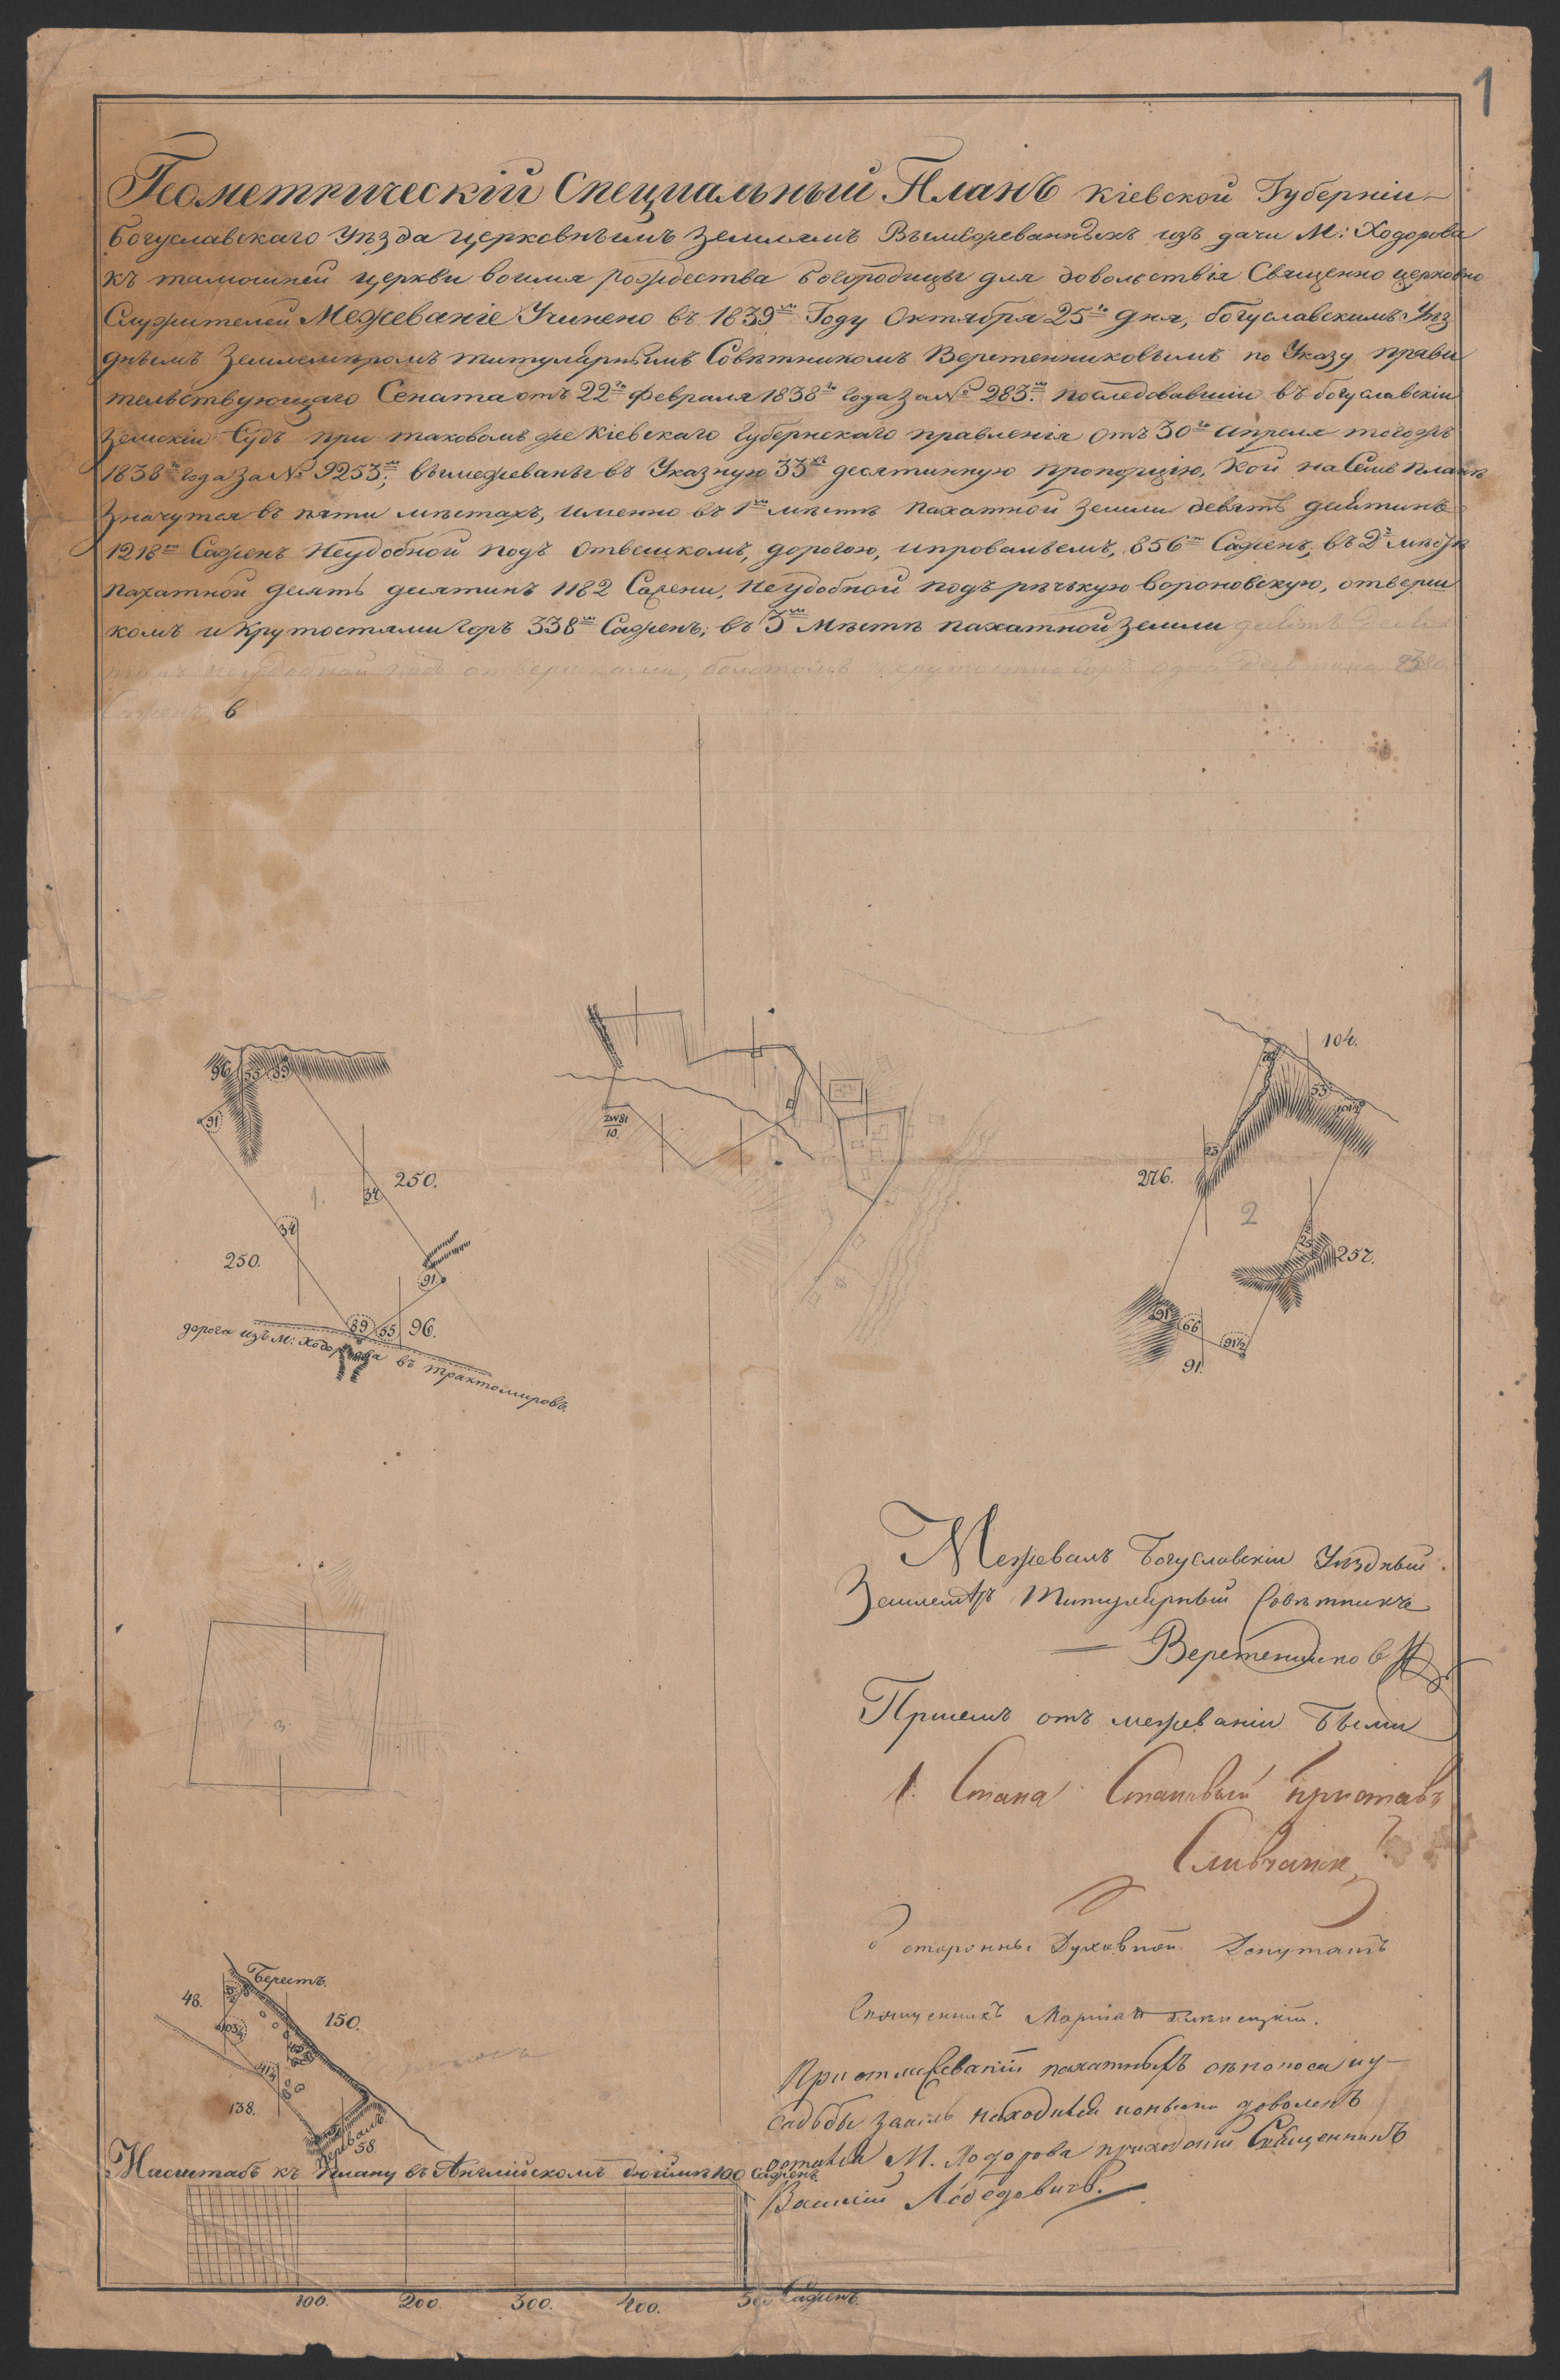 1
Геометрическій Спеціальный Планъ Кіевской Губерніи
Богуславскаго Уѣзда Церковнымъ Землямъ Вымежеваннымъ изъ дачи М: Ходорова
къ тамошней церкви воимя рождества богородицы для довольствія Священно церковно
Служителей Межеваніе Учинено въ 1839мъ Году Октября 25го дня, богуславскимъ Уѣз
днымъ Землемѣромъ титулярнымъ Совѣтникомъ Веретенниковымъ по Указу прави
тельствующаго Сената отъ 22го февраля 1838го года за № 283мъ последовавшіи въ богуславскіи
Земскіи Судъ при таковомъ же Кіевскаго Губернскаго правленія отъ 30го апреля тогожъ
1838го года за № 9253мъ; вымежеваны въ Указную 33хъ десятинную пропорцію, кои на Семъ планѣ
Значутся въ пяти мѣстахъ, именно въ 1мъ мѣстѣ пахатной земли девять десятинъ
1218ть Саженъ неудобной подъ отвешкомъ, дорогою, и проваліемъ, 856ть Саженъ, въ 2мъ мѣстѣ
пахатной десять десятинъ 1182 Сажени, неудобной подъ рѣчькую вороновскую, отверш
комъ и Крутостями горъ 338мъ Саженъ; въ 3мъ Мѣстѣ пахатной земли девять десе
тинъ неудобной подъ отвершками, болотомъ
Саженъ в
96 55 89
91
34
250.
1.
34
250.
91
89 55 96.
дорога изъ М: Ходорова въ трактомировъ.
10.
104.
53
101½
23
276.
2
25
257.
91 66 91½
91.
3.
Межевалъ Богуславскіи Уѣздный
Землемѣръ Титулярный Совѣтникъ
Веретенников
Прысемъ отъ межеваніи были
1. Стана Становый приставъ
стороны Духовной Депутатъ
Священникъ
При отмежеваніи пахатныхъ сѣнокоса и у-
садьбы земль находился и оными доволенъ
остался М. Ходорова приходскій Священникъ
Василій Лебедовичъ.
Берестъ.
48.
150.
138.
58.
Масштабъ къ плану въ Англійскомъ дюймѣ 100 Саженъ.
100. 200. 300. 400. 500 Саженъ.